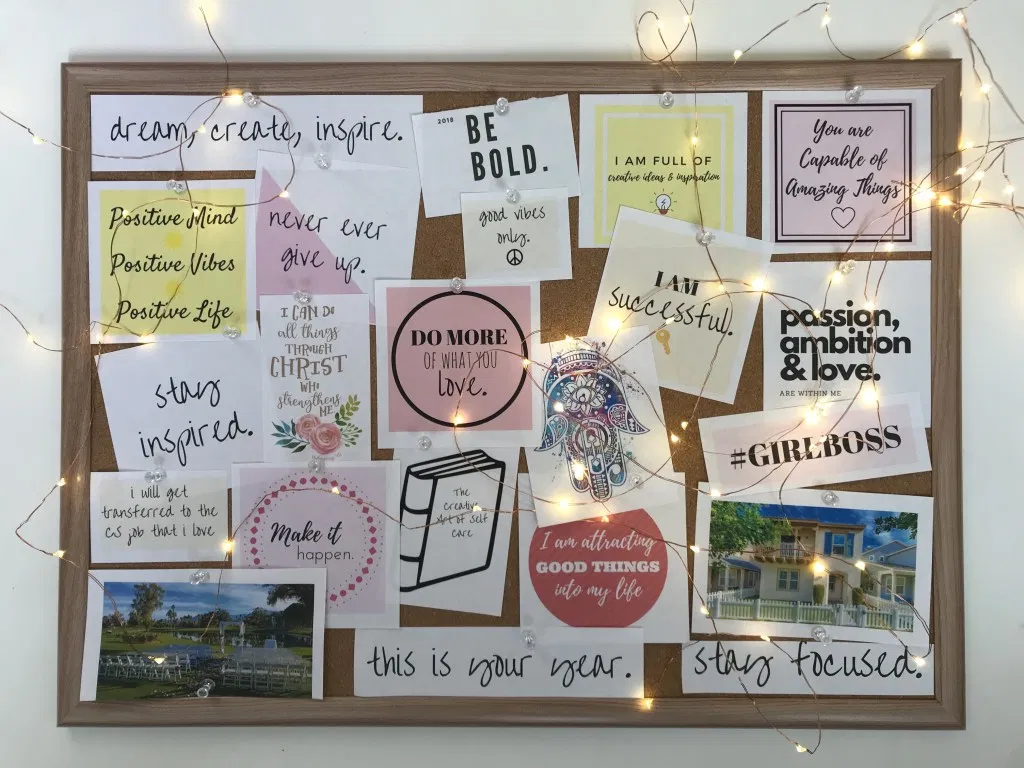 dream, create, inspire.
2018
BE
BOLD.
I AM FULL OF
creative ideas & inspiration
You are
Capable of
Amazing Things
Positive Mind
Positive Vibes
Positive Life
never ever
give up.
good vibes
only.
I AM
successful.
passion,
ambition
& love.
ARE WITHIN ME
I CAN DO
all things
THROUGH
CHRIST
WHO
strengthens
ME
DO MORE
OF WHAT YOU
love.
stay
inspired.
#GIRLBOSS
i will get
transferred to the
CS job that i love
Make it
happen.
The
creative
art of self
care
I am attracting
GOOD THINGS
into my life
this is your year.
stay focused.